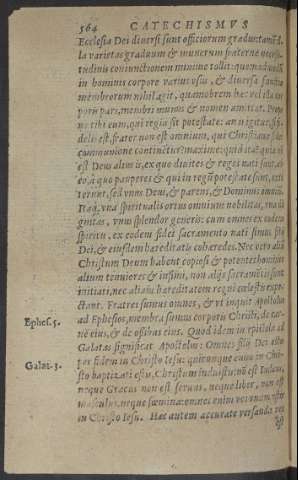 564 CATECHISMVS
Ecclesia Dei diuersi sunt officiorum gradus: tamẽ
la varietas graduum & munerum fraternæ necessi-
tudinis coniunctionem minime tollit: quomodo
in hominis corpore varius vsus, & diuersa functio
membrorum nihil agit, quamobrem hæc vel illa cor
poris pars, membri munus & nomen amittat. Pone
tibi eum, qui regia sit potestate: an is igitur, si fi-
delis est, frater non est omnium, qui Christianæ fidei
communione continẽtur? maxime: quid ita? quia
est Deus alius is, ex quo diuites & reges nati sunt, ab
eo, à quo pauperes & qui in regũ potestate sunt, exti
terunt, sed vnus Deus, & parens, & Dominus omniũ.
Itaq; vna spiritualis ortus omnium nobilitas, vna di
gnitas, vnus splendor generis: cum omnes ex eodem
spiritu, ex eodem fidei sacramento nati simus filij
Dei, & eiusdem hæreditatis coheredes. Nec vero aliũ
Christum Deum habent copiosi & potentes homines
alium tenuiores & infimi, non alijs sacramẽtis sunt
initiati, nec aliam hæreditatem regni cœlestis expe-
ctant. Fratres sumus omnes, & vt inquit Apostolus
Ephes. 5. ad Ephesios, membra sumus corporis Christi, de car-
ne eius, & de ossibus eius. Quod idem in epistola ad
Galatas significat Apostolus: Omnes filij Dei estis
Galat. 3. per fidem in Christo Iesu: quicunque enim in Chri-
sto baptizati estis, Christum induistis: nõ est Iudæus,
neque Græcus: non est seruus, neque liber, non est
masculus, neque fœmina: omnes enim vos vnum estis
in Christo Iesu. Hæc autem accurate versanda res
est